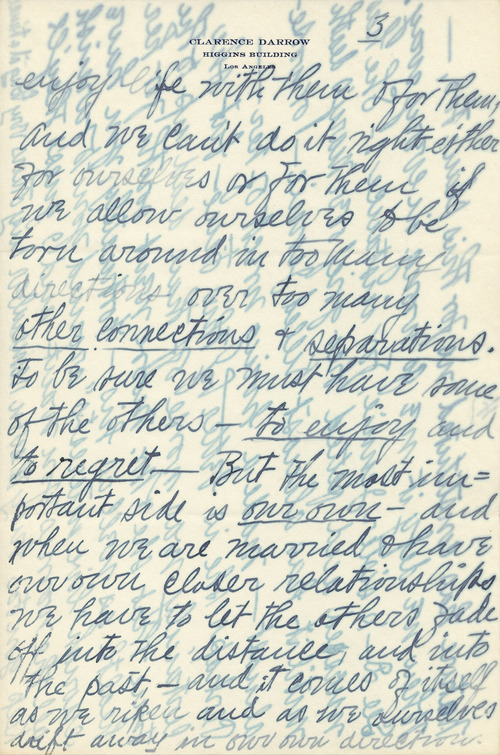 3
CLARENCE DARROW
HIGGINS BUILDING
LOS ANGELES
enjoy life with them & for them
and we can't do it right either
for ourselves or for them if
we allow ourselves to be
torn around in too many
directions over too many
other connections & separations.
To be sure we must have some
of the others — to enjoy and
to regret — But the most im=
portant side is our own — and
when we are married & have
our own closer relationships
we have to let the others fade
off into the distance, and into
the past, — and it comes of itself
as we ripen and as we ourselves
drift away in our own direction.